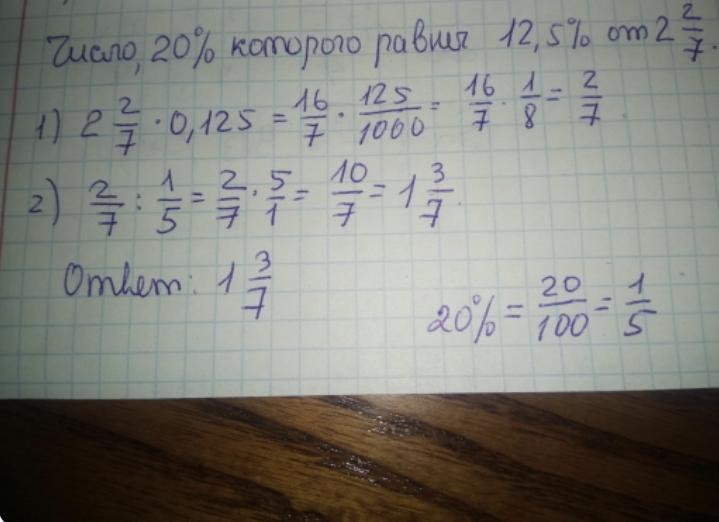 Число, 20% которого равны 12,5% от 2 2/7.
1) 2 2/7 · 0,125 = 16/7 · 125/1000 = 16/7 · 1/8 = 2/7
2) 2/7 : 1/5 = 2/7 · 5/1 = 10/7 = 1 3/7.
Ответ: 1 3/7
20% = 20/100 = 1/5